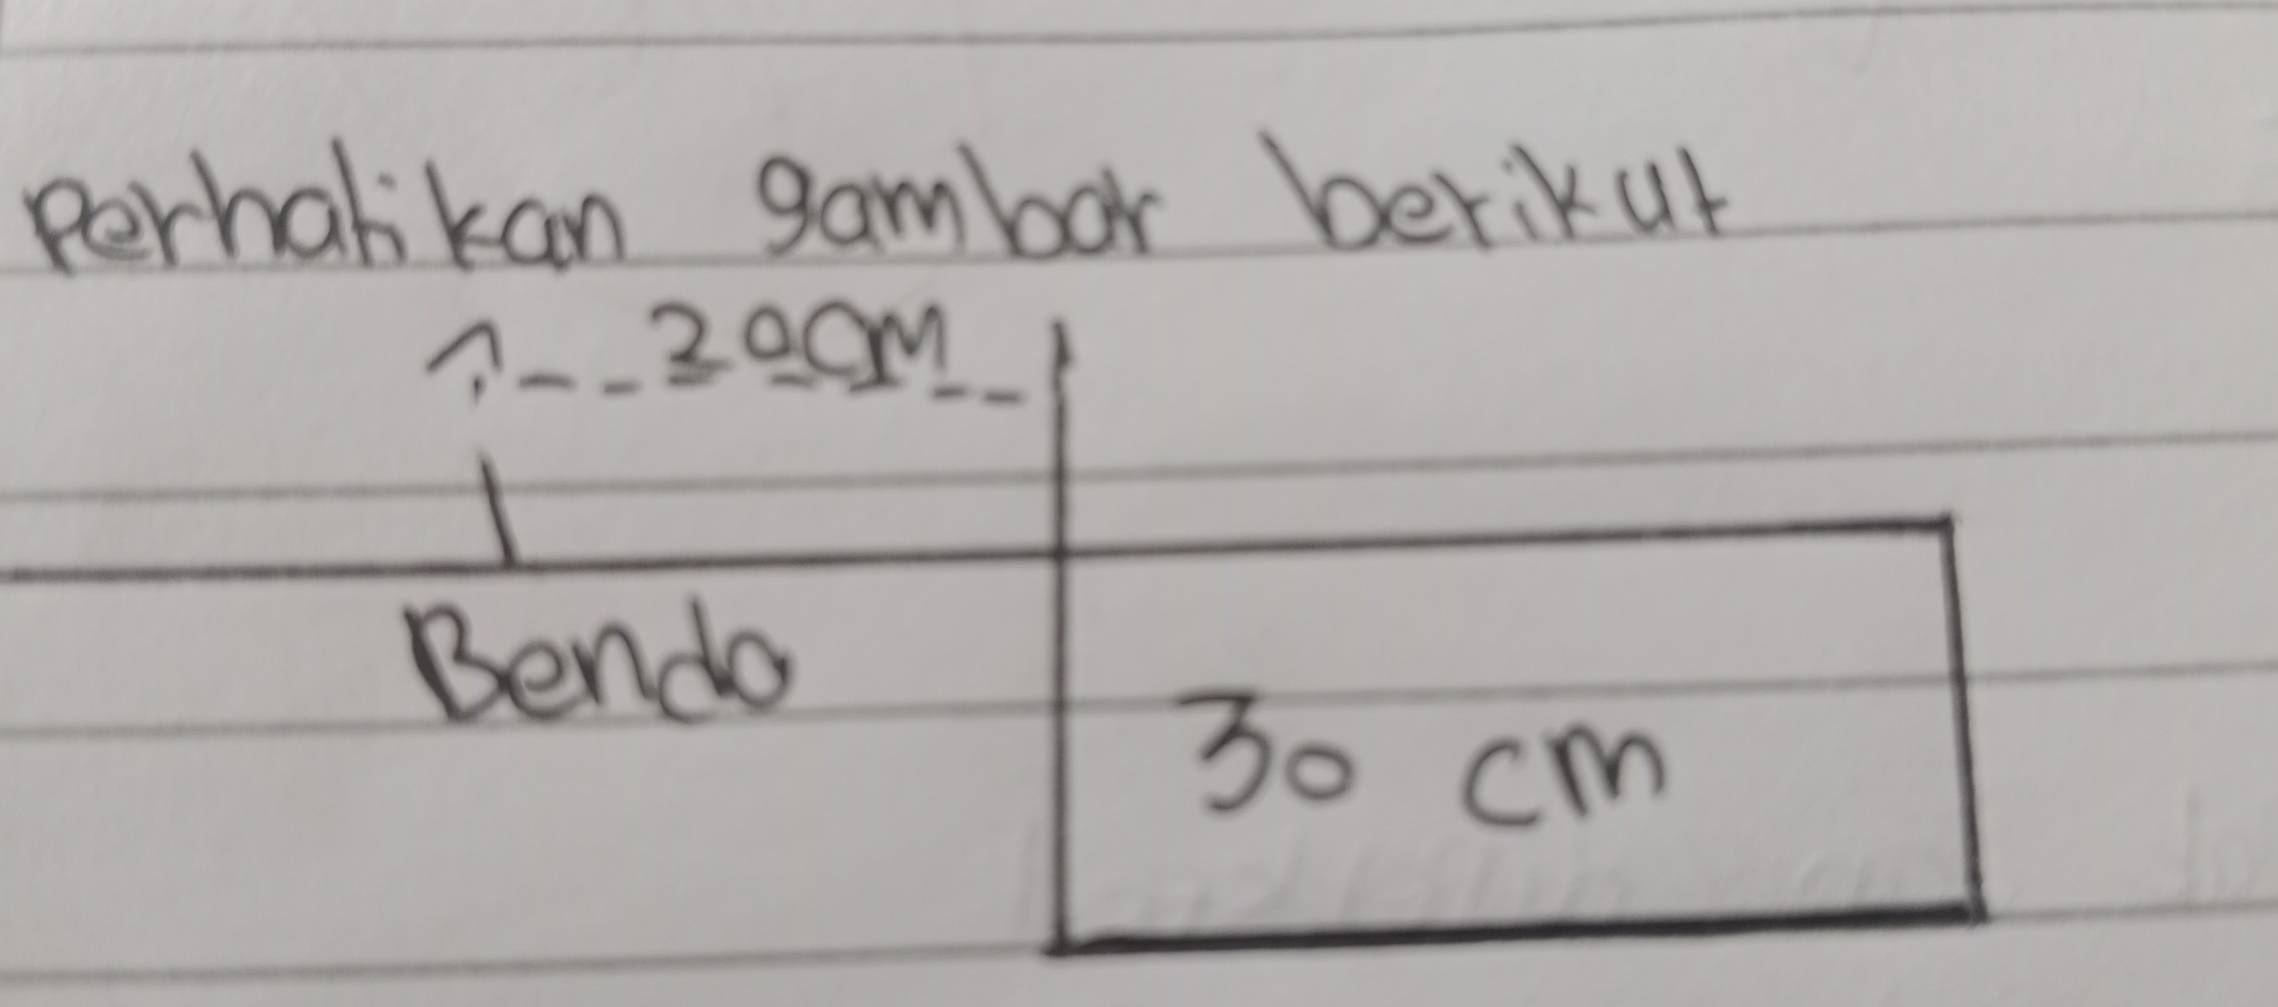 Perhatikan gambar berikut
20cm
Benda
30 cm